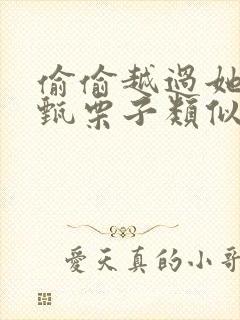 偷偷越過她
甄栗子類似
愛天真的小哥